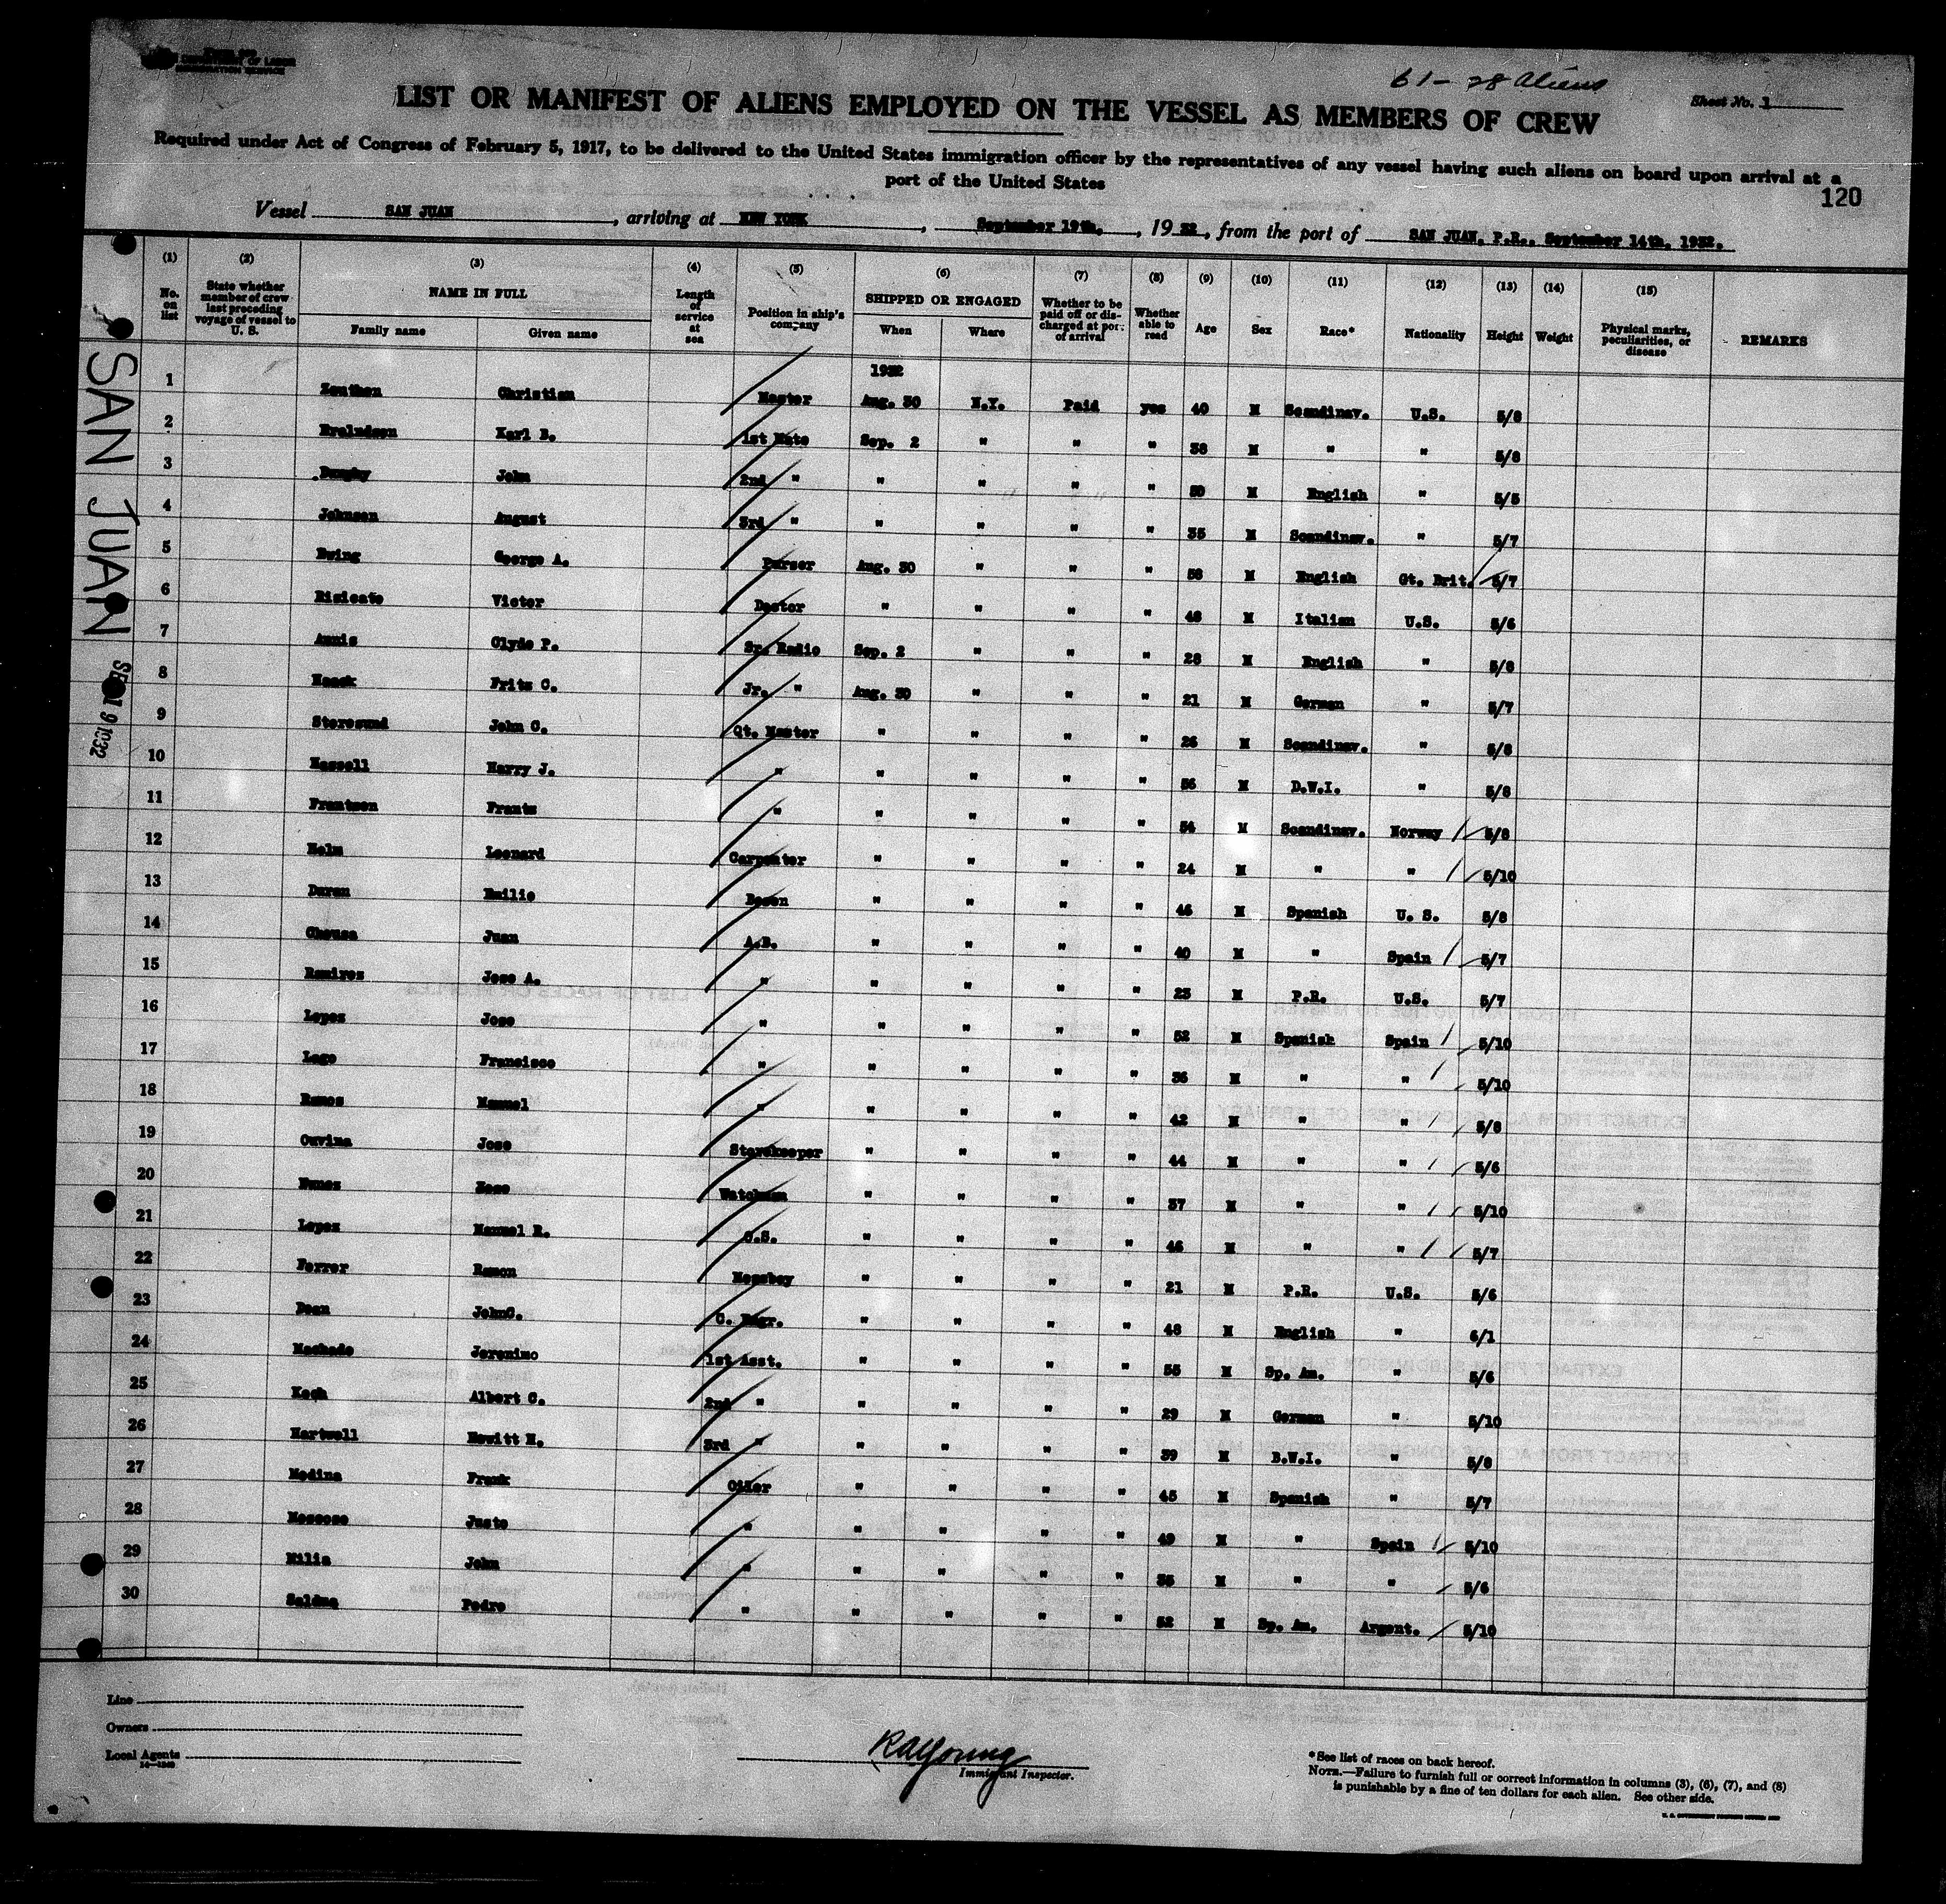 DEPARTMENT OF LABOR
IMMIGRATION SERVICE
61 - 28 Aliens
Sheet No. 1
LIST OR MANIFEST OF ALIENS EMPLOYED ON THE VESSEL AS MEMBERS OF CREW
Required under Act of Congress of February 5, 1917, to be delivered to the United States immigration officer by the representatives of any vessel having such aliens on board upon arrival at a
port of the United States
120
Vessel SAN JUAN, arriving at NEW YORK, September 19th, 1932, from the port of SAN JUAN, P.R., September 14th, 1932.
(1) (2) (3) (4) (5) (6) (7) (8) (9) (10) (11) (12) (13) (14) (15)
No. on list State whether member of crew last preceding voyage of vessel to U. S. NAME IN FULL Family name Given name Length of service at sea Position in ship's company SHIPPED OR ENGAGED When Where Whether to be paid off or discharged at port of arrival Whether able to read Age Sex Race* Nationality Height Weight Physical marks, peculiarities, or disease REMARKS
1932
1 Zenthen Christian Master Aug. 30 N.Y. Paid yes 40 M Scandinav. U.S. 5/8
2 Karl B. 1st Mate Sep. 2 " " " 38 M " " 5/8
3 John 2nd " " " " " 50 M English " 5/5
4 Johnson August 3rd " " " " " 35 M Scandinav. " 5/7
5 Ewing George A. Purser Aug. 30 " " " 58 M English Gt. Brit. 5/7
6 Risicato Victor Doctor " " " " 48 M Italian U.S. 5/6
7 Annis Clyde P. Sr. Radio Sep. 2 " " " 28 M English " 5/8
8 Haack Fritz C. Jr. " Aug. 30 " " " 21 M German " 5/7
9 Storesund John C. Qt. Master " " " " 26 M Scandinav. " 5/8
10 Hassell Harry J. " " " " " 56 M D.W.I. " 5/8
11 Frantzen Frantz " " " " " 54 M Scandinav. Norway 5/8
12 Holm Leonard Carpenter " " " " 24 M " " 5/10
13 Duran Emilio Bosen " " " " 46 M Spanish U. S. 5/8
14 Chousa Juan A.B. " " " " 40 M " Spain 5/7
15 Ramirez Jose A. " " " " " 23 M P.R. U.S. 5/7
16 Lopez Jose " " " " " 52 M Spanish Spain 5/10
17 Lago Francisco " " " " " 36 M " " 5/10
18 Ramos Manuel " " " " " 42 M " " 5/8
19 Ouvina Jose Storekeeper " " " " 44 M " " 5/6
20 Nunez Watchman " " " " 37 M " " 5/10
21 Lopez Manuel R. O.S. " " " " 46 M " " 5/7
22 Ferrer Ramon Messboy " " " " 21 M P.R. U.S. 5/6
23 Dean JohnG. C. Engr. " " " " 48 M English " 6/1
24 Machado Jeronimo 1st Asst. " " " " 55 M Sp. Am. " 5/6
25 Koch Albert C. 2nd " " " " " 29 M German " 5/10
26 Hartwell Hewitt H. 3rd " " " " " 39 M B.W.I. " 5/8
27 Medina Frank Oiler " " " " 45 M Spanish " 5/7
28 Moscoso Justo " " " " " 49 M " Spain 5/10
29 Milia John " " " " " 35 M " " 5/6
30 Saldna Pedro " " " " " 52 M Sp. Am. Argent. 5/10
SAN JUAN
SEP 19 1932
Line
Owners
Local Agents
RAYoung
Immigrant Inspector.
*See list of races on back hereof.
NOTE.—Failure to furnish full or correct information in columns (3), (6), (7), and (8)
is punishable by a fine of ten dollars for each alien. See other side.